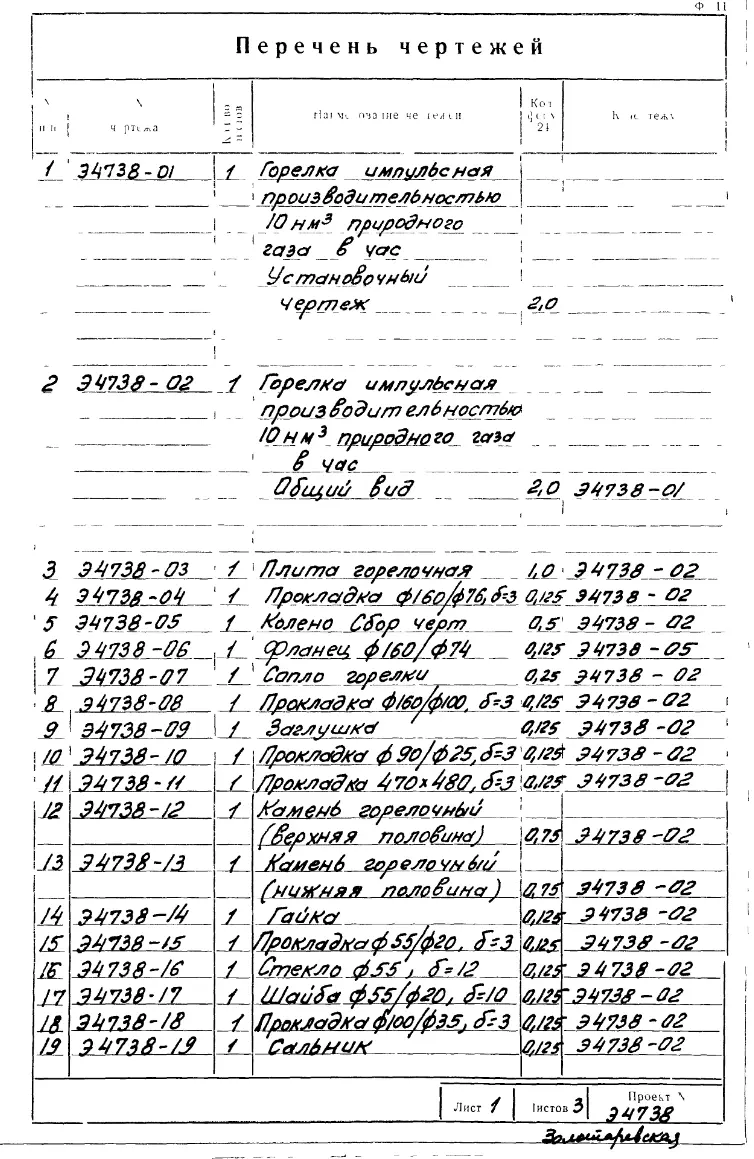 Ф 11
Перечень чертежей
1 Э4738-01 1 Горелка импульсная
производительностью
10 нм³ природного
газа в час
Установочный
чертеж 2,0
2 Э4738-02 1 Горелка импульсная
производительностью
10 нм³ природного газа
в час
Общий вид 2,0 Э4738-01
3 Э4738-03 1 Плита горелочная 1,0 Э4738-02
4 Э4738-04 1 Прокладка ф160/ф76, δ=3 0,125 Э4738-02
5 Э4738-05 1 Колено Сбор черт 0,5 Э4738-02
6 Э4738-06 1 Фланец ф160/ф74 0,125 Э4738-05
7 Э4738-07 1 Сопло горелки 0,25 Э4738-02
8 Э4738-08 1 Прокладка ф160/ф100, δ=3 0,125 Э4738-02
9 Э4738-09 1 Заглушка 0,125 Э4738-02
10 Э4738-10 1 Прокладка ф90/ф25, δ=3 0,125 Э4738-02
11 Э4738-11 1 Прокладка 470х480, δ=3 0,125 Э4738-02
12 Э4738-12 1 Камень горелочный
(верхняя половина) 0,75 Э4738-02
13 Э4738-13 1 Камень горелочный
(нижняя половина) 0,75 Э4738-02
14 Э4738-14 1 Гайка 0,125 Э4738-02
15 Э4738-15 1 Прокладка ф55/ф20, δ=3 0,125 Э4738-02
16 Э4738-16 1 Стекло ф55, δ=12 0,125 Э4738-02
17 Э4738-17 1 Шайба ф55/ф20, δ=10 0,125 Э4738-02
18 Э4738-18 1 Прокладка ф100/ф35, δ=3 0,125 Э4738-02
19 Э4738-19 1 Сальник 0,125 Э4738-02
Лист 1 Листов 3 Проект №
Э4738
Золотаревская